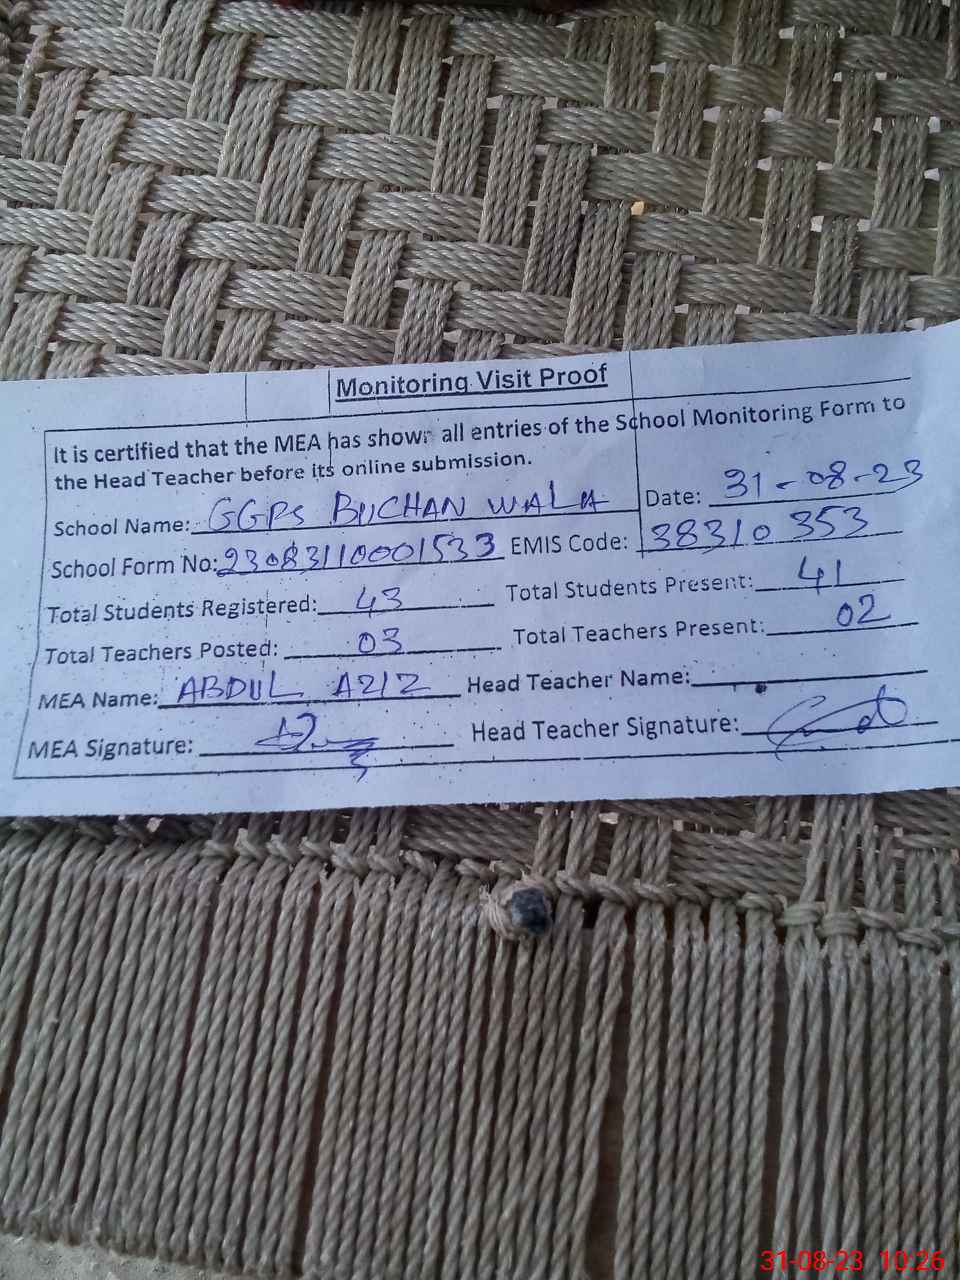 Monitoring Visit Proof
It is certified that the MEA has shown all entries of the School Monitoring Form to
the Head Teacher before its online submission.
School Name: GGPS BUCHAN WALA Date: 31-08-23
School Form No: 23083110001533 EMIS Code: 38310353
Total Students Registered: 43 Total Students Present: 41
Total Teachers Posted: 03 Total Teachers Present: 02
MEA Name: ABDUL AZIZ Head Teacher Name:
MEA Signature: Head Teacher Signature:
31-08-23 10:26